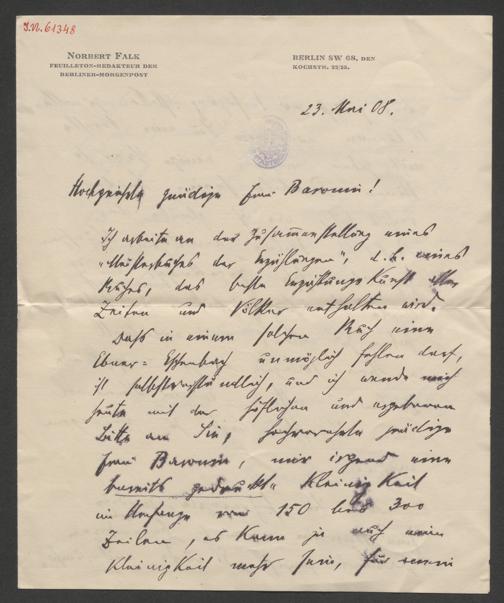 J.N. 61348
NORBERT FALK
FEUILLETON-REDAKTEUR DER
BERLINER-MORGENPOST
BERLIN SW 68, DEN
KOCHSTR. 23/25.
23. Mai 08.
Hochverehrte gnädige Frau Baronin!
Ich arbeite an der Zusammenstellung eines
"Meisterbuches der Erzählungen", d. h. eines
Buches, das beste Erzählungskunst aller
Zeiten und Völker enthalten wird.
Dass in einem solchen Buch eine
Ebner-Eschenbach unmöglich fehlen darf,
ist selbstverständlich, und ich wende mich
heute mit der höflichen und ergebenen
Bitte an Sie, hochverehrte gnädige
Frau Baronin, mir irgend eine
bereits gedruckte Kleinigkeit
im Umfange von 150 bis 300
Zeilen, es kann ja auch eine
Kleinigkeit mehr sein, für